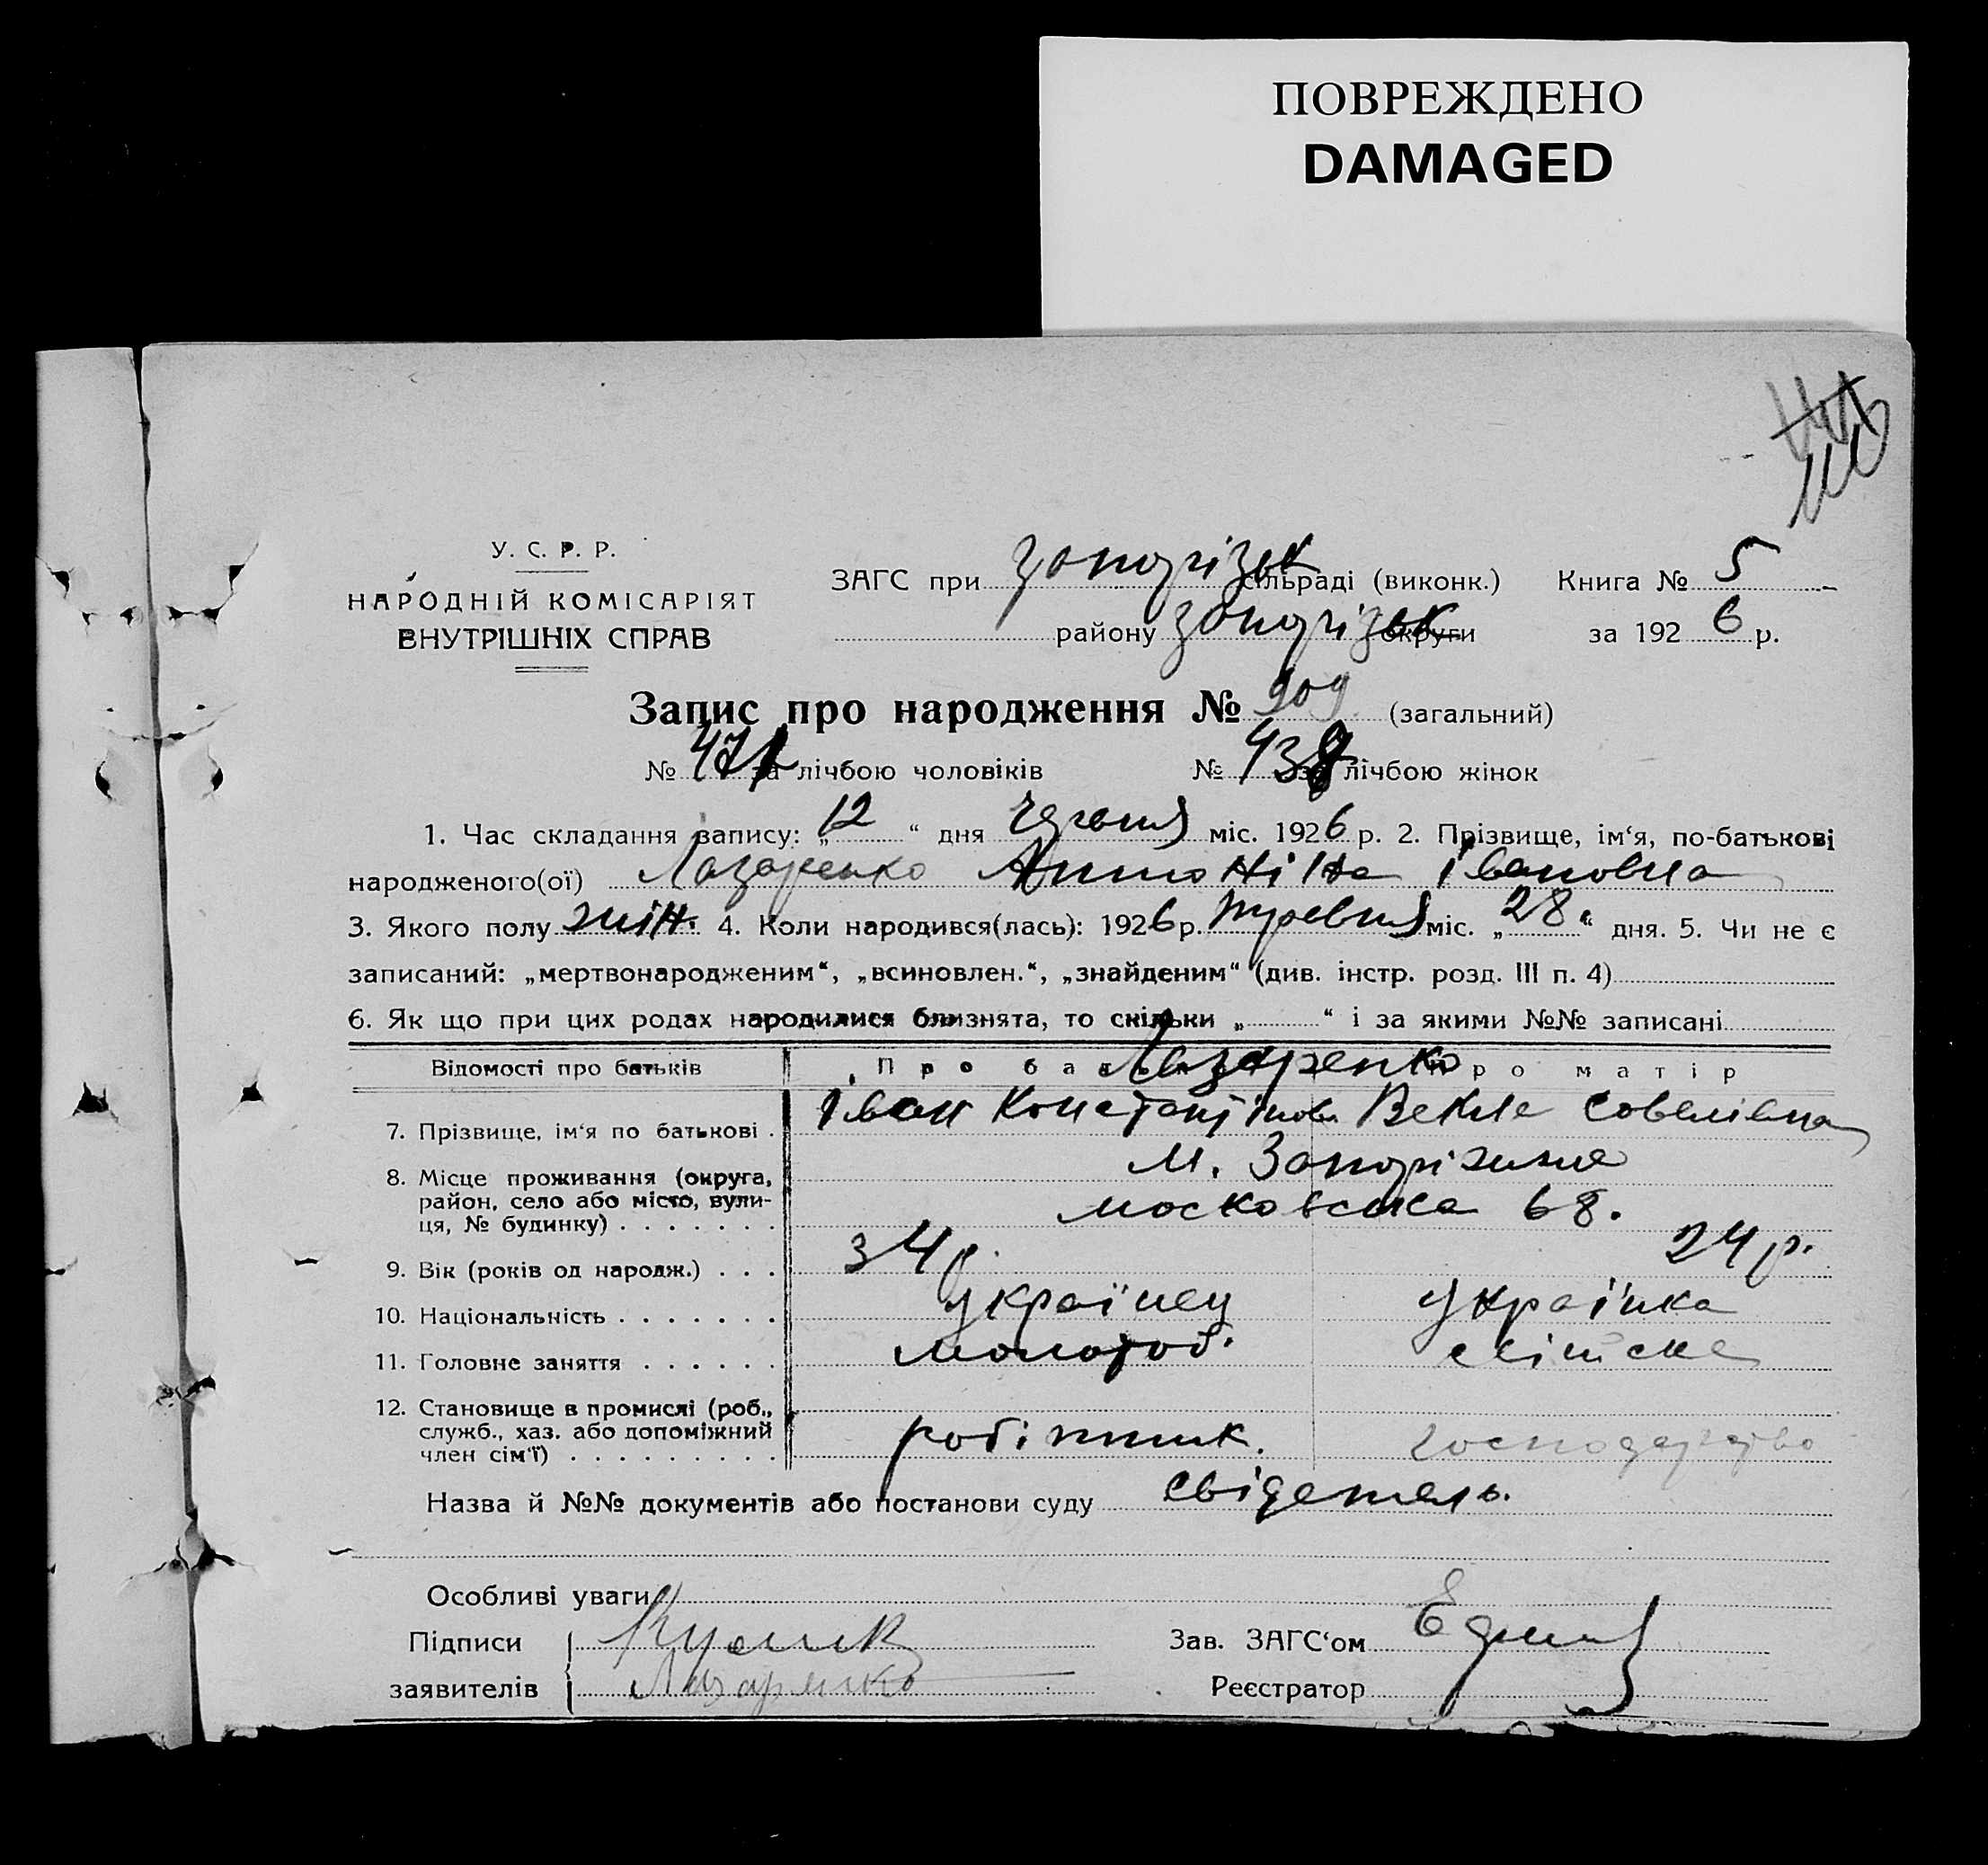 ПОВРЕЖДЕНО
DAMAGED
У. С. Р. Р.
НАРОДНІЙ КОМІСАРІЯТ
ВНУТРІШНІХ СПРАВ
ЗАГС при Запорізьк сільраді (виконк.) Книга № 5
району Запорізьк округи за 1926 р.
Запис про народження № 909 (загальний)
№ 471 за лічбою чоловіків № 438 за лічбою жінок
1. Час складання запису: „12“ дня Червня міс. 1926 р. 2. Прізвище, ім‘я, по-батькові
народженого(ої) Лазаренко Антоніна Івановна
3. Якого полу жін. 4. Коли народився(лась): 1926 р. Травня міс. „28“ дня. 5. Чи не є
записаний: „мертвонародженим“, „всиновлен.“, „знайденим“ (див. інстр. розд. III п. 4)
6. Як що при цих родах народилися близнята, то скільки „ “ і за якими №№ записані
Відомості про батьків Про батька Про матір
Лазаренко
7. Прізвище, ім‘я по батькові . Іван Константінов. Векла Совелівна
8. Місце проживання (округа, м. Запоріжжя
район, село або місто, вули-
ця, № будинку) . . . . . . . московська 68.
9. Вік (років од народж.) . . . 34 р. 24 р.
10. Національність . . . . . . . Українец Українка
11. Головне заняття . . . . . . молотоб.
12. Становище в промислі (роб.,
служб., хаз. або допоміжний робітник. господарство
член сім‘ї) . . . . . . . . .
Назва й №№ документів або постанови суду свідетель.
Особливі уваги
Підписи Кулик Зав. ЗАГС‘ом
заявителів Лазаренко Реєстратор